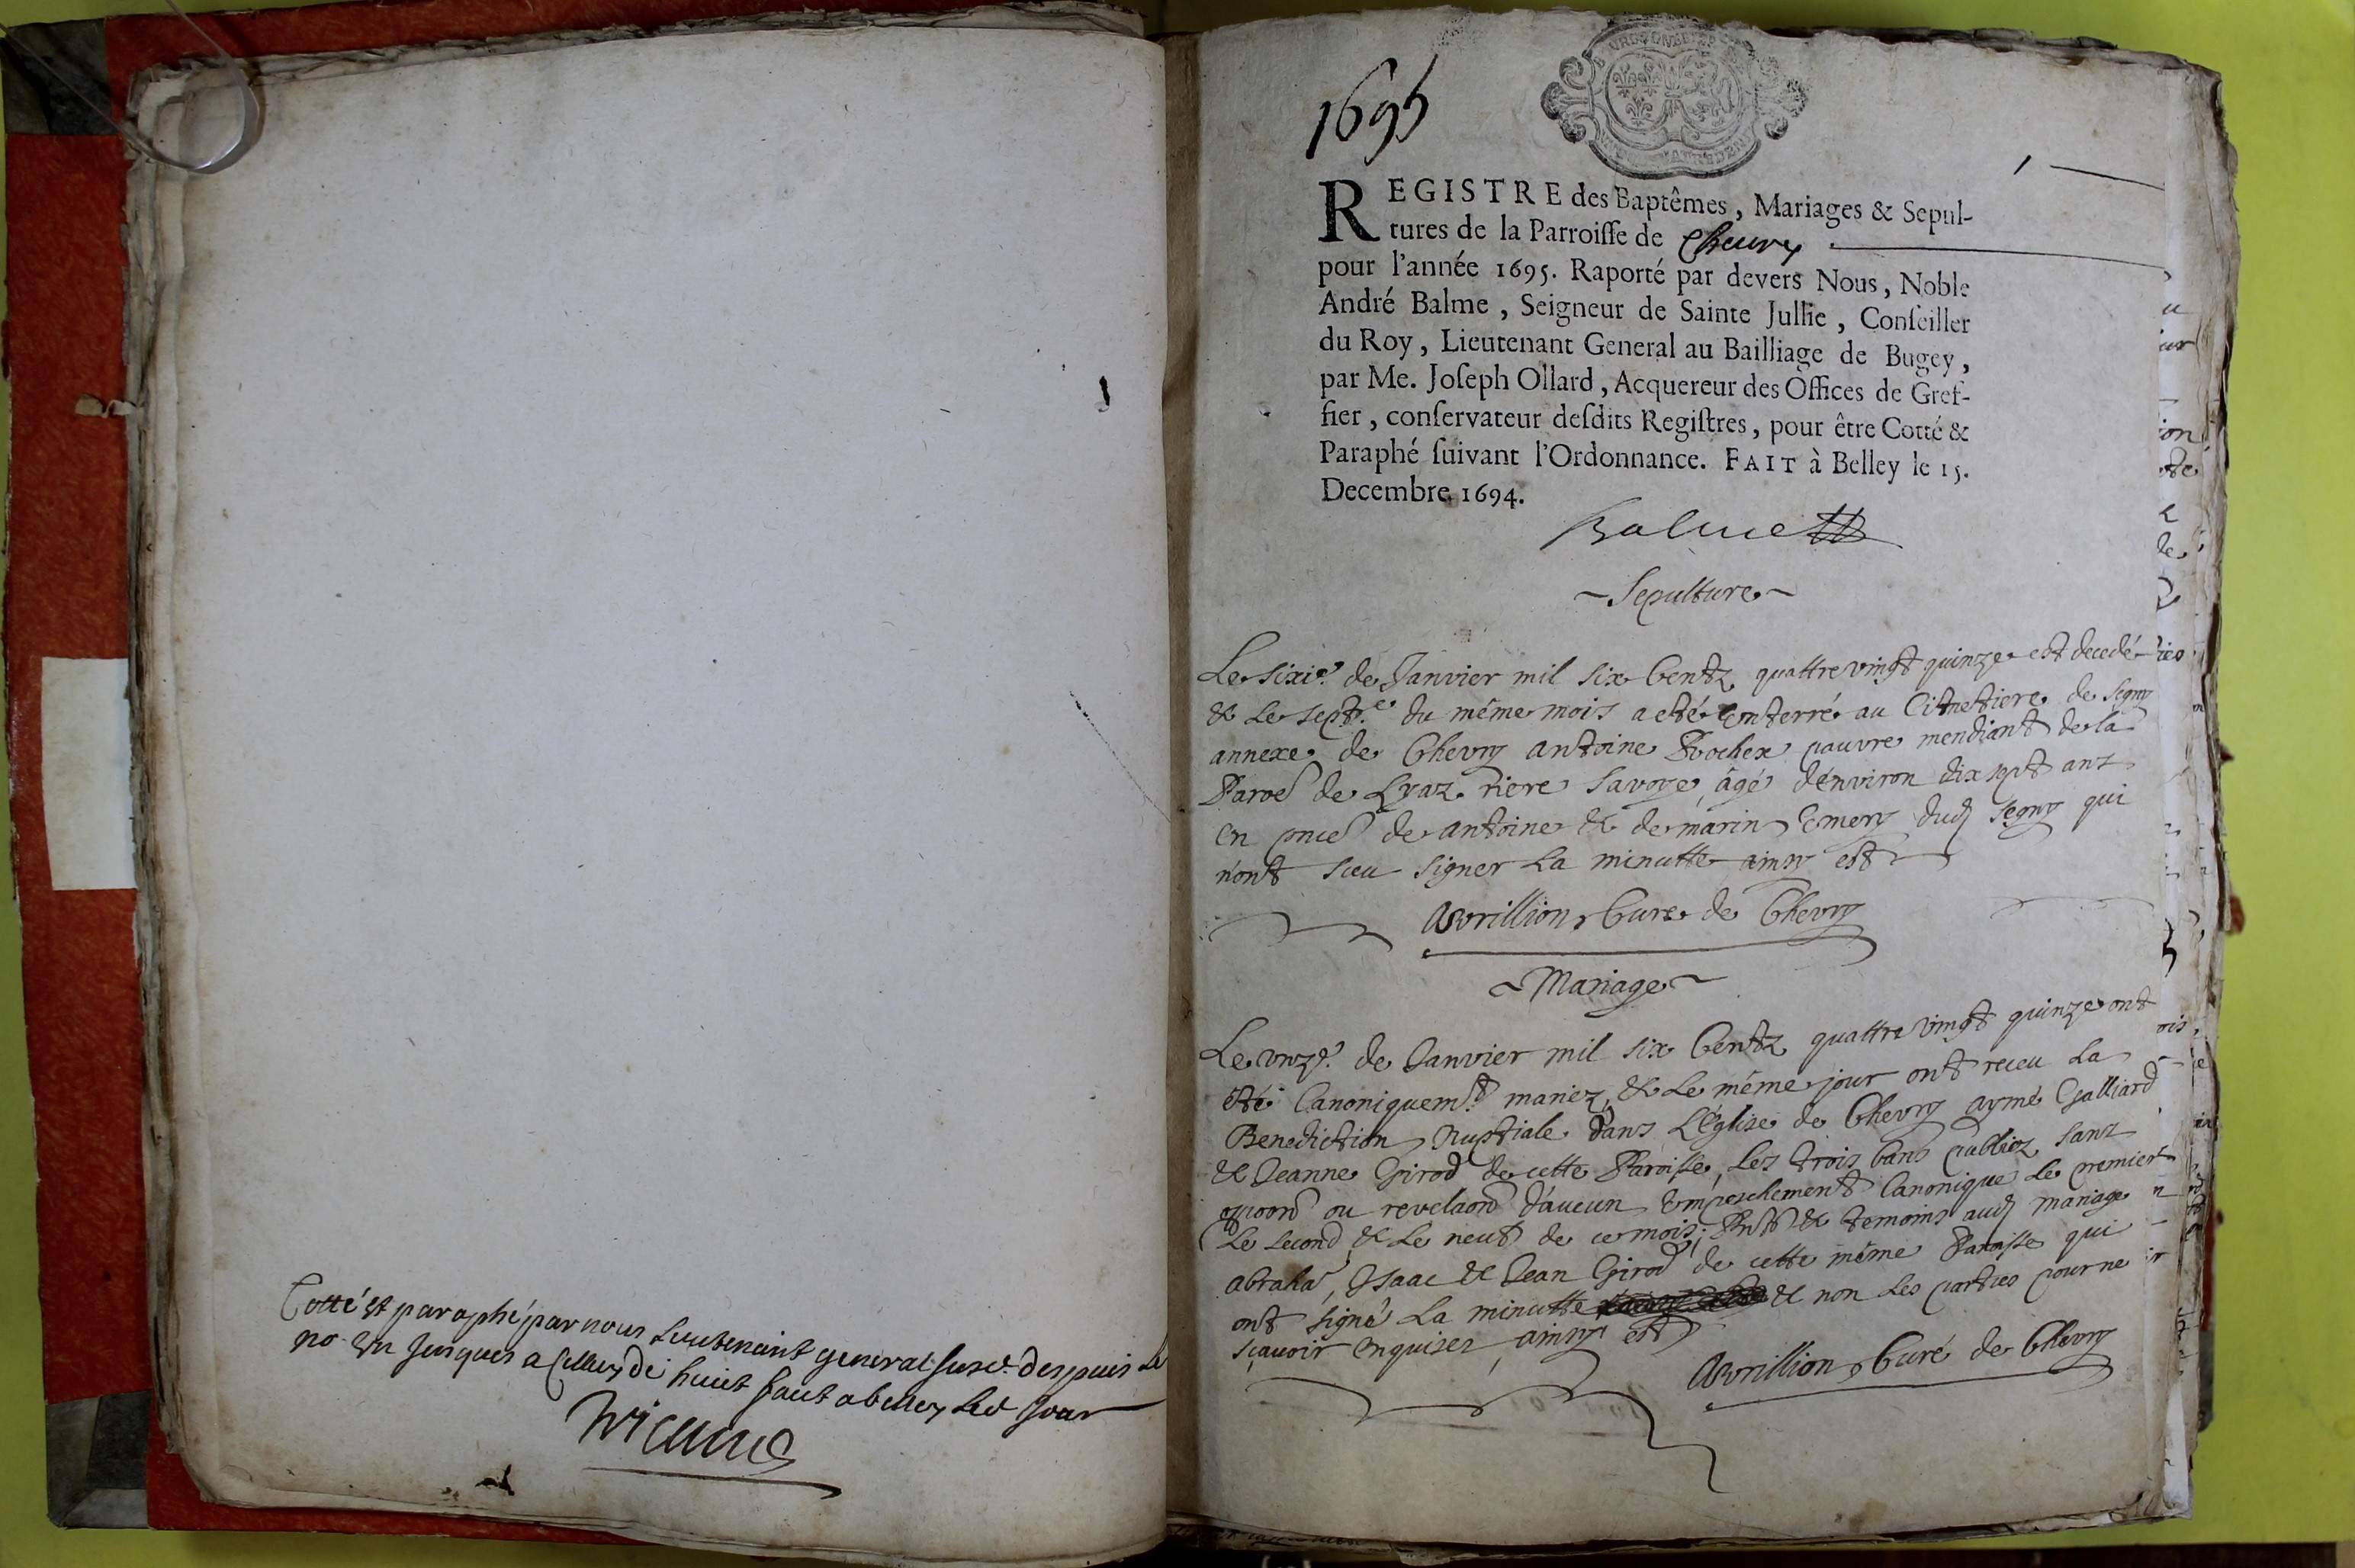 Cotté et paraphé par nous Lieutenant general susd. despuis le
no. un jusques a celluy de huict faict a belley led jour
1695
REGISTRE des Baptêmes, Mariages & Sepul-
tures de la Parroiſſe de Chevry
pour l'année 1695. Raporté par devers Nous, Noble
André Balme, Seigneur de Sainte Jullie, Conſeiller
du Roy, Lieutenant General au Bailliage de Bugey,
par Me. Joſeph Ollard, Acquereur des Offices de Gref-
fier, conſervateur deſdits Regiſtres, pour être Cotté &
Paraphé ſuivant l'Ordonnance. FAIT à Belley le 15.
Decembre 1694.
Balme
~ Sepulture ~
Le sixie. de Janvier mil six Centz quattre vingt quinze est decedé
& le sept.e du même mois a eté enterré au Cimetiere de Segny
annexe de Chevry antoine Rochex pauvre mendiant de la
Paroe de Lyaz riere Savoye, âgé d'environ dix sept ans
en pnce de antoine & de marin Emery dud Segny qui
n'ont sceu signer La minutte ainsy est
Avrillion Curé de Chevry
~ Mariage ~
Le unze. de Janvier mil six Centz quattre vingt quinze ont
été Canoniquemt. mariez, & Le même jour ont receu La
Benediction Nuptiale dans L'Eglise de Chevry aymé Galliard
& Jeanne Girod de cette Paroisse, Les trois bans publiez sans
oppoon ou revelaon d'aucun Empeschement Canonique Le premier
Le second & Le neuf de ce mois; Pnts & temoins aud mariage
abraha, Isaac & Jean Girod de cette même Paroisse qui
ont signé La minutte & non Les parties pour ne
sçavoir enquises, ainsy est
Avrillion Curé de Chevry